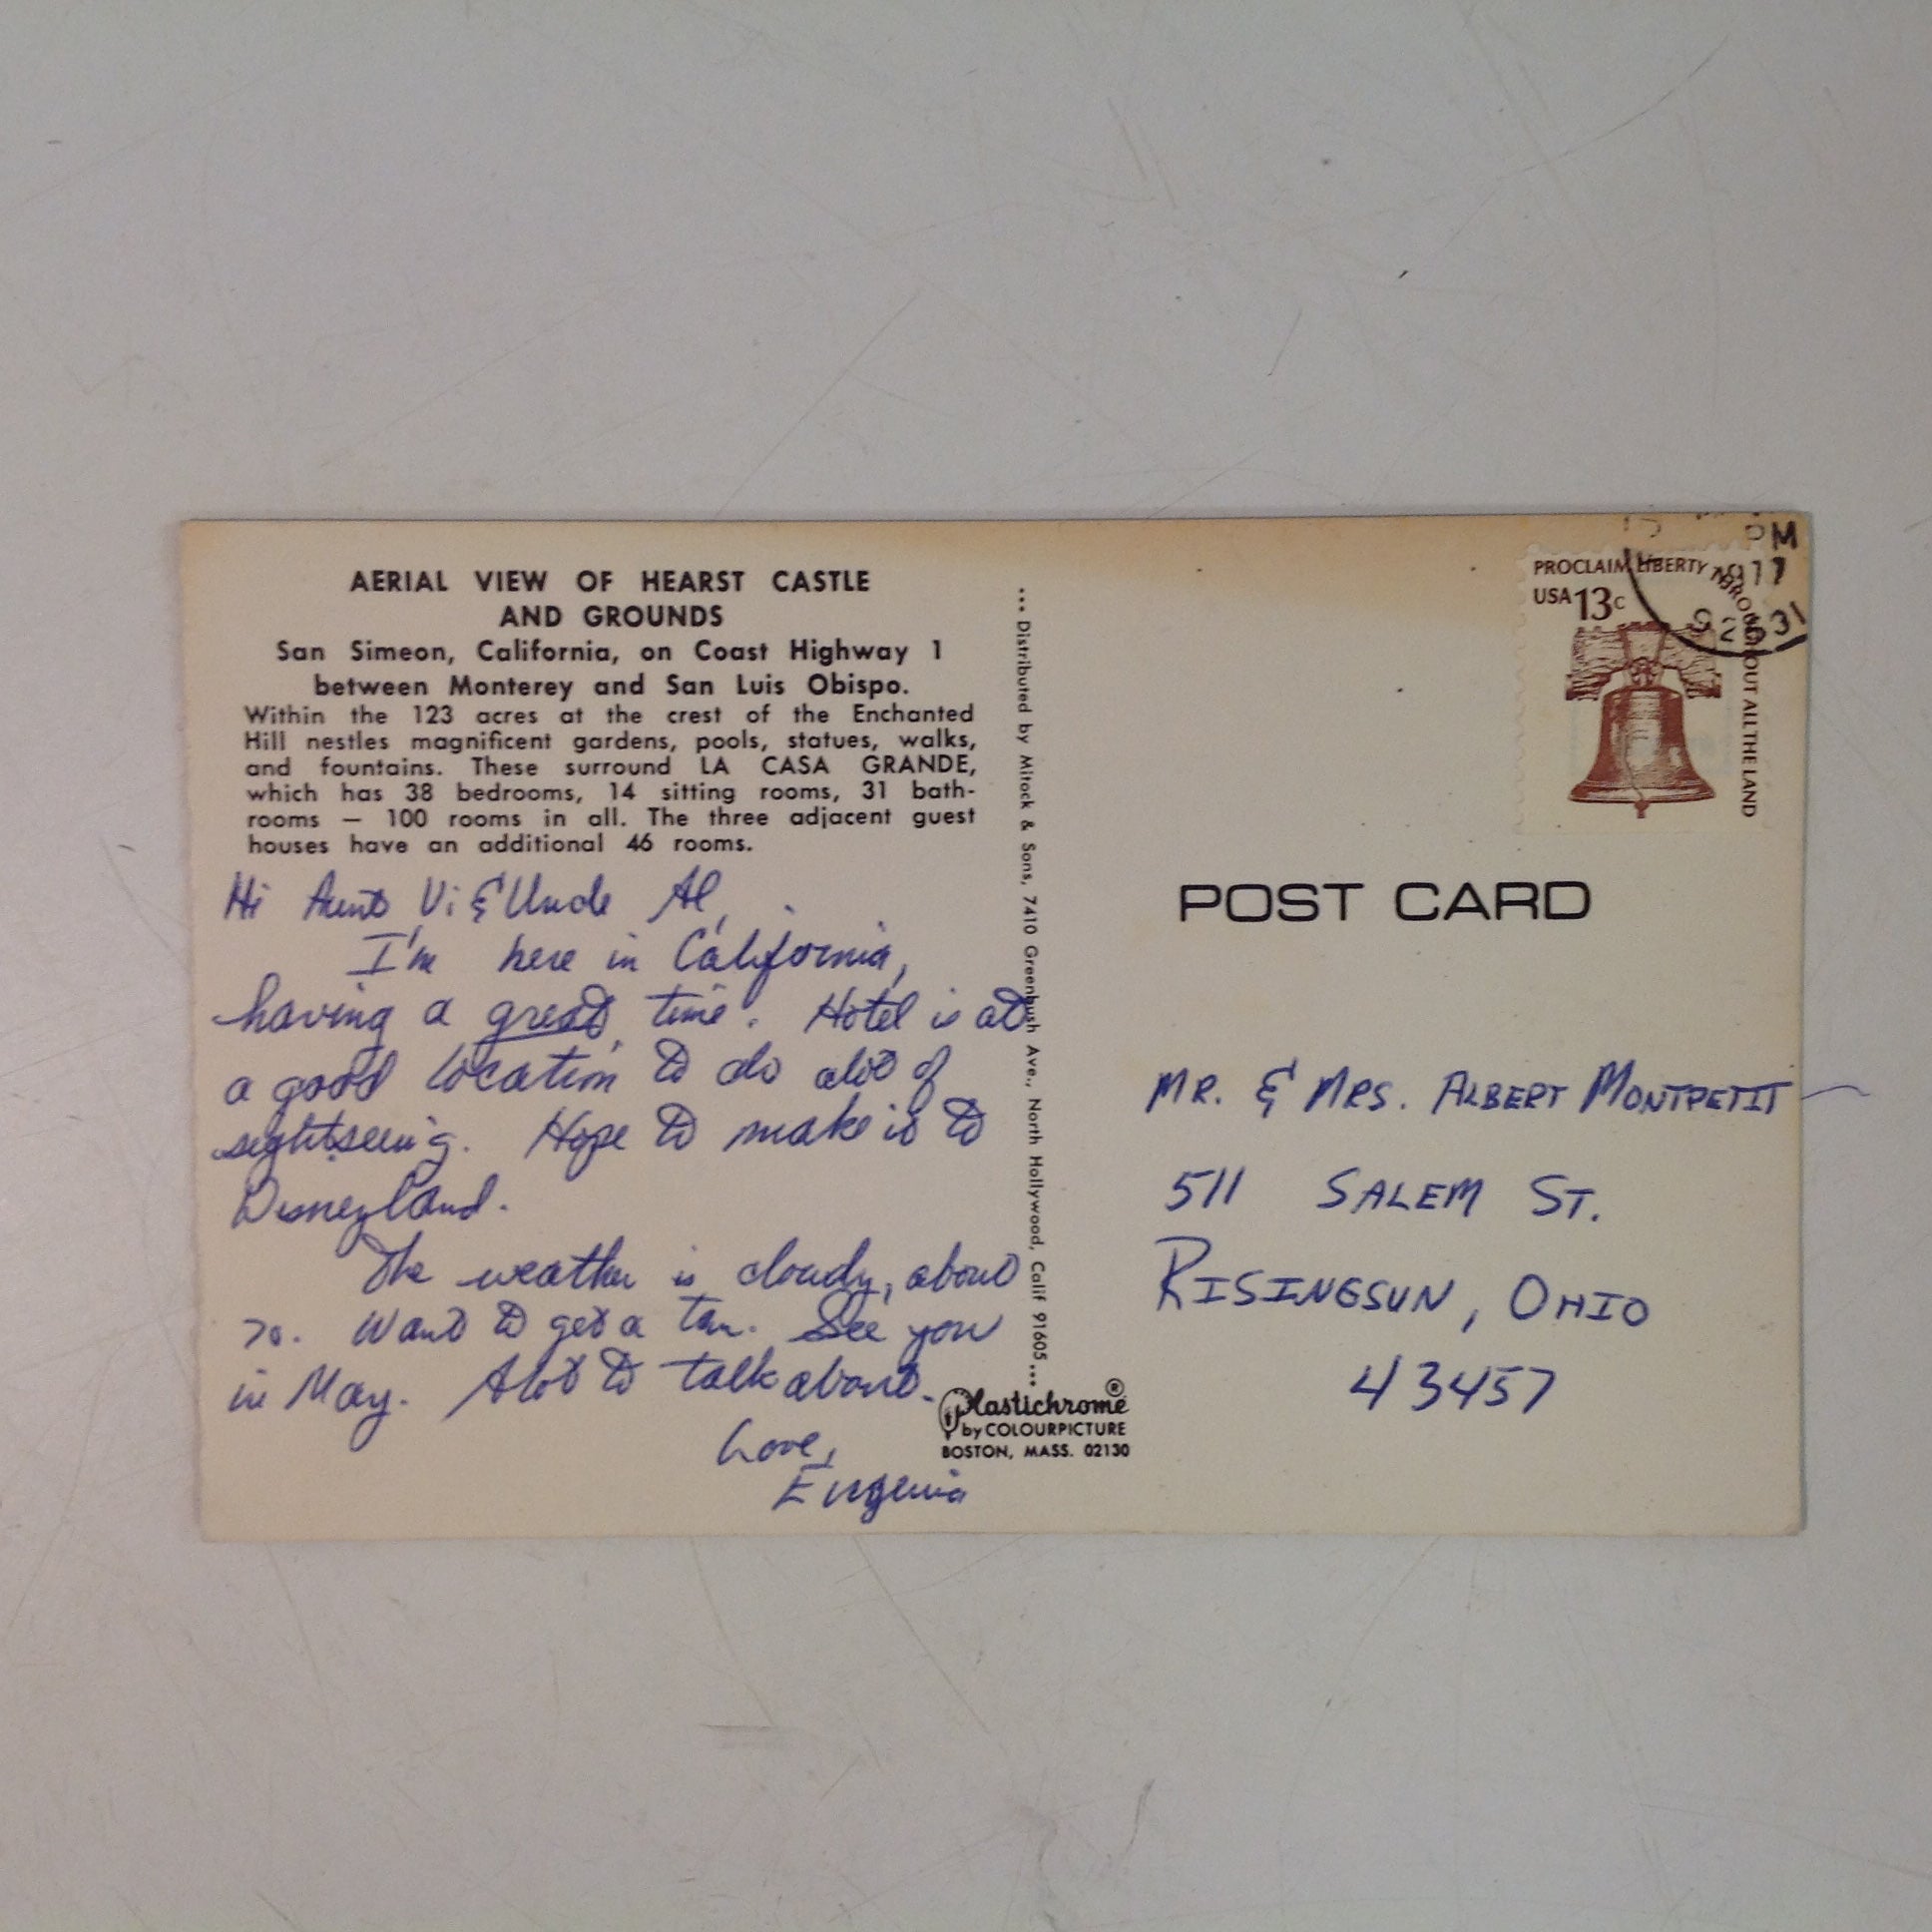 AERIAL VIEW OF HEARST CASTLE
AND GROUNDS
San Simeon, California, on Coast Highway 1
between Monterey and San Luis Obispo.
Within the 123 acres at the crest of the Enchanted
Hill nestles magnificent gardens, pools, statues, walks,
and fountains. These surround LA CASA GRANDE,
which has 38 bedrooms, 14 sitting rooms, 31 bath-
rooms — 100 rooms in all. The three adjacent guest
houses have an additional 46 rooms.
Hi Aunt Vi & Uncle Al,
I'm here in California,
having a great time. Hotel is at
a good location to do alot of
sightseeing. Hope to make it to
Disneyland.
The weather is cloudy, about
70. Want to get a tan. See you
in May. Alot to talk about.
Love,
Eugenia
... Distributed by Mitock & Sons, 7410 Greenbush Ave., North Hollywood, Calif 91605 ...
Plastichrome®
by COLOURPICTURE
BOSTON, MASS. 02130
PM
1977
PROCLAIM LIBERTY THROUGHOUT ALL THE LAND
USA 13c
POST CARD
MR. & MRS. ALBERT MONTPETIT
511 SALEM ST.
RISINGSUN, OHIO
43457